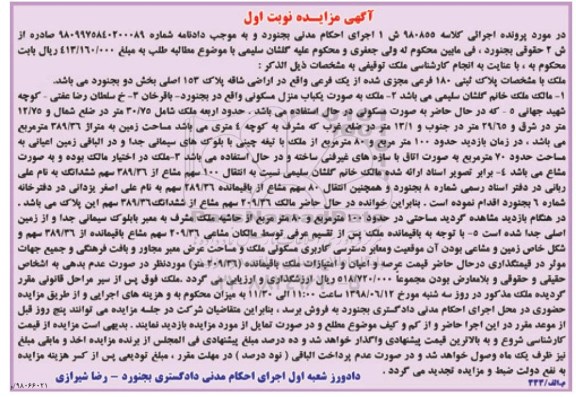 آگهی مزایده نوبت اول
در مورد پرونده اجرائی کلاسه ۹۸۰۸۵۵ ش ۱ اجرای احکام مدنی بجنورد و به موجب دادنامه شماره ۹۸۰۹۹۷۵۸۴۰۲۰۰۰۸۹ صادره از
ش ۲ حقوقی بجنورد ، فی مابین محکوم له ولی جعفری و محکوم علیه گلشان سلیمی با موضوع مطالبه طلب به مبلغ ۴۱۳/۱۶۰/۰۰۰ ریال بابت
محکوم به ، با عنایت به انجام کارشناسی ملک توقیفی به مشخصات ذیل الذکر :
ملک با مشخصات پلاک ثبتی ۱۸۰ فرعی مجزی شده از یک فرعی واقع در اراضی شاقه پلاک ۱۵۳ اصلی بخش دو بجنورد می باشد.
۱- مالک ملک خانم گلشان سلیمی می باشد ۲- ملک به صورت یکباب منزل مسکونی واقع در بجنورد- باقرخان ۳- خ سلطان رضا عفتی - کوچه
شهید جهانی ۵ - که در حال حاضر به صورت مسکونی در حال استفاده می باشد . حدود اربعه ملک شامل ۳۰/۷۵ متر در ضلع شمال و ۱۲/۷۵
متر در شرق و ۲۹/۶۵ متر در جنوب و ۱۳/۱ متر در ضلع غرب که مشرف به کوچه ۴ متری می باشد مساحت زمین به متراژ ۳۸۹/۳۶ مترمربع
می باشد ، در زمان بازدید حدود ۱۰۰ متر مربع و ۸۰ مترمربع از ملک با تیغه چینی با بلوک های سیمانی جدا و در الباقی زمین اعیانی به
مساحت حدود ۷۰ مترمربع به صورت اتاق با سازه های غیرفنی ساخته و در حال استفاده می باشد ۳-ملک در اختیار مالک بوده و به صورت
مشاع می باشد ۴- برابر تصویر اسناد ارائه شده مالک خانم گلشان سلیمی نسبت به انتقال ۱۰۰ سهم مشاع از ۳۸۹/۳۶ سهم ششدانگ به نام علی
ربانی در دفتر اسناد رسمی شماره ۸ بجنورد و همچنین انتقال ۸۰ سهم مشاع از باقیمانده ۳۸۹/۳۶ سهم به نام علی اصغر یزدانی در دفترخانه
شماره ۶ بجنورد اقدام نموده است . بنابراین خوانده در حال حاضر مالک ۲۰۹/۳۶ سهم مشاع از ششدانگ۳۸۹/۳۶ سهم این پلاک می باشد .
در هنگام بازدید مشاهده گردید مساحتی در حدود ۱۰۰ مترمربع و ۸۰ مترمربع از حاشیه ملک مشرف به معبر بابلوک سیمانی جدا و از زمین
اصلی جدا شده است ۵- با توجه به باقیمانده ملک پس از تقسیم عرفی توسط مالکان مشاعی ۲۰۹/۳۶ سهم مشاع باقیمانده از ۳۸۹/۳۶ سهم و
شکل خاص زمین و مشاعی بودن آن موقعیت ومعابر دسترسی کاربری مسکونی ملک و با توجه به عرض معبر مجاور و بافت فرهنگی و جمیع جهات
موثر در قیمتگذاری درحال حاضر قیمت عرصه و اعیان و امتیازات ملک باقیمانده (۲۰۹/۳۶ متر) موردنظر در صورت عدم بدهی به اشخاص
حقیقی و حقوقی و بلامعارض بودن مجموعا ۵۱۸/۷۲۰/۰۰۰ ریال ارزشگذاری و ارزیابی می گردد .ملک فوق پس از سیر مراحل قانونی مقرر
گردیده ملک مذکور در روز سه شنبه مورخ ۱۳۹۸/۰۶/۱۲ از ساعت ۱۱:۰۰ الی ۱۱:۳۰ به میزان محکوم به و هزینه های اجرایی و از طریق مزایده
حضوری در محل اجرای احکام مدنی دادگستری بجنورد به فروش برسد ، بنابراین متقاضیان شرکت در جلسه مزایده می توانند پنج روز قبل
از موعد مقرر در این اجرا حاضر و از کم و کیف موضوع مطلع و در صورت تمایل از مورد مزایده بازدید نمایند . بدیهی است مزایده از قیمت
کارشناسی شروع و به بالاترین قیمت پیشنهادی واگذار خواهد شد و ده درصد مبلغ پیشنهادی فی المجلس از برنده مزایده اخذ و مابقی مبلغ
نیز ظرف یک ماه وصول خواهد شد و در صورت عدم پرداخت الباقی ( نود درصد ) در مهلت مقرر ، مبلغ تودیعی پس از کسر هزینه مزایده
به نفع دولت ضبط و مزایده تجدید می گردد .
دادورز شعبه اول اجرای احکام مدنی دادگستری بجنورد - رضا شیرازی
م/الف/۴۴۳
۹۸۰۶۶۰۲۱/م